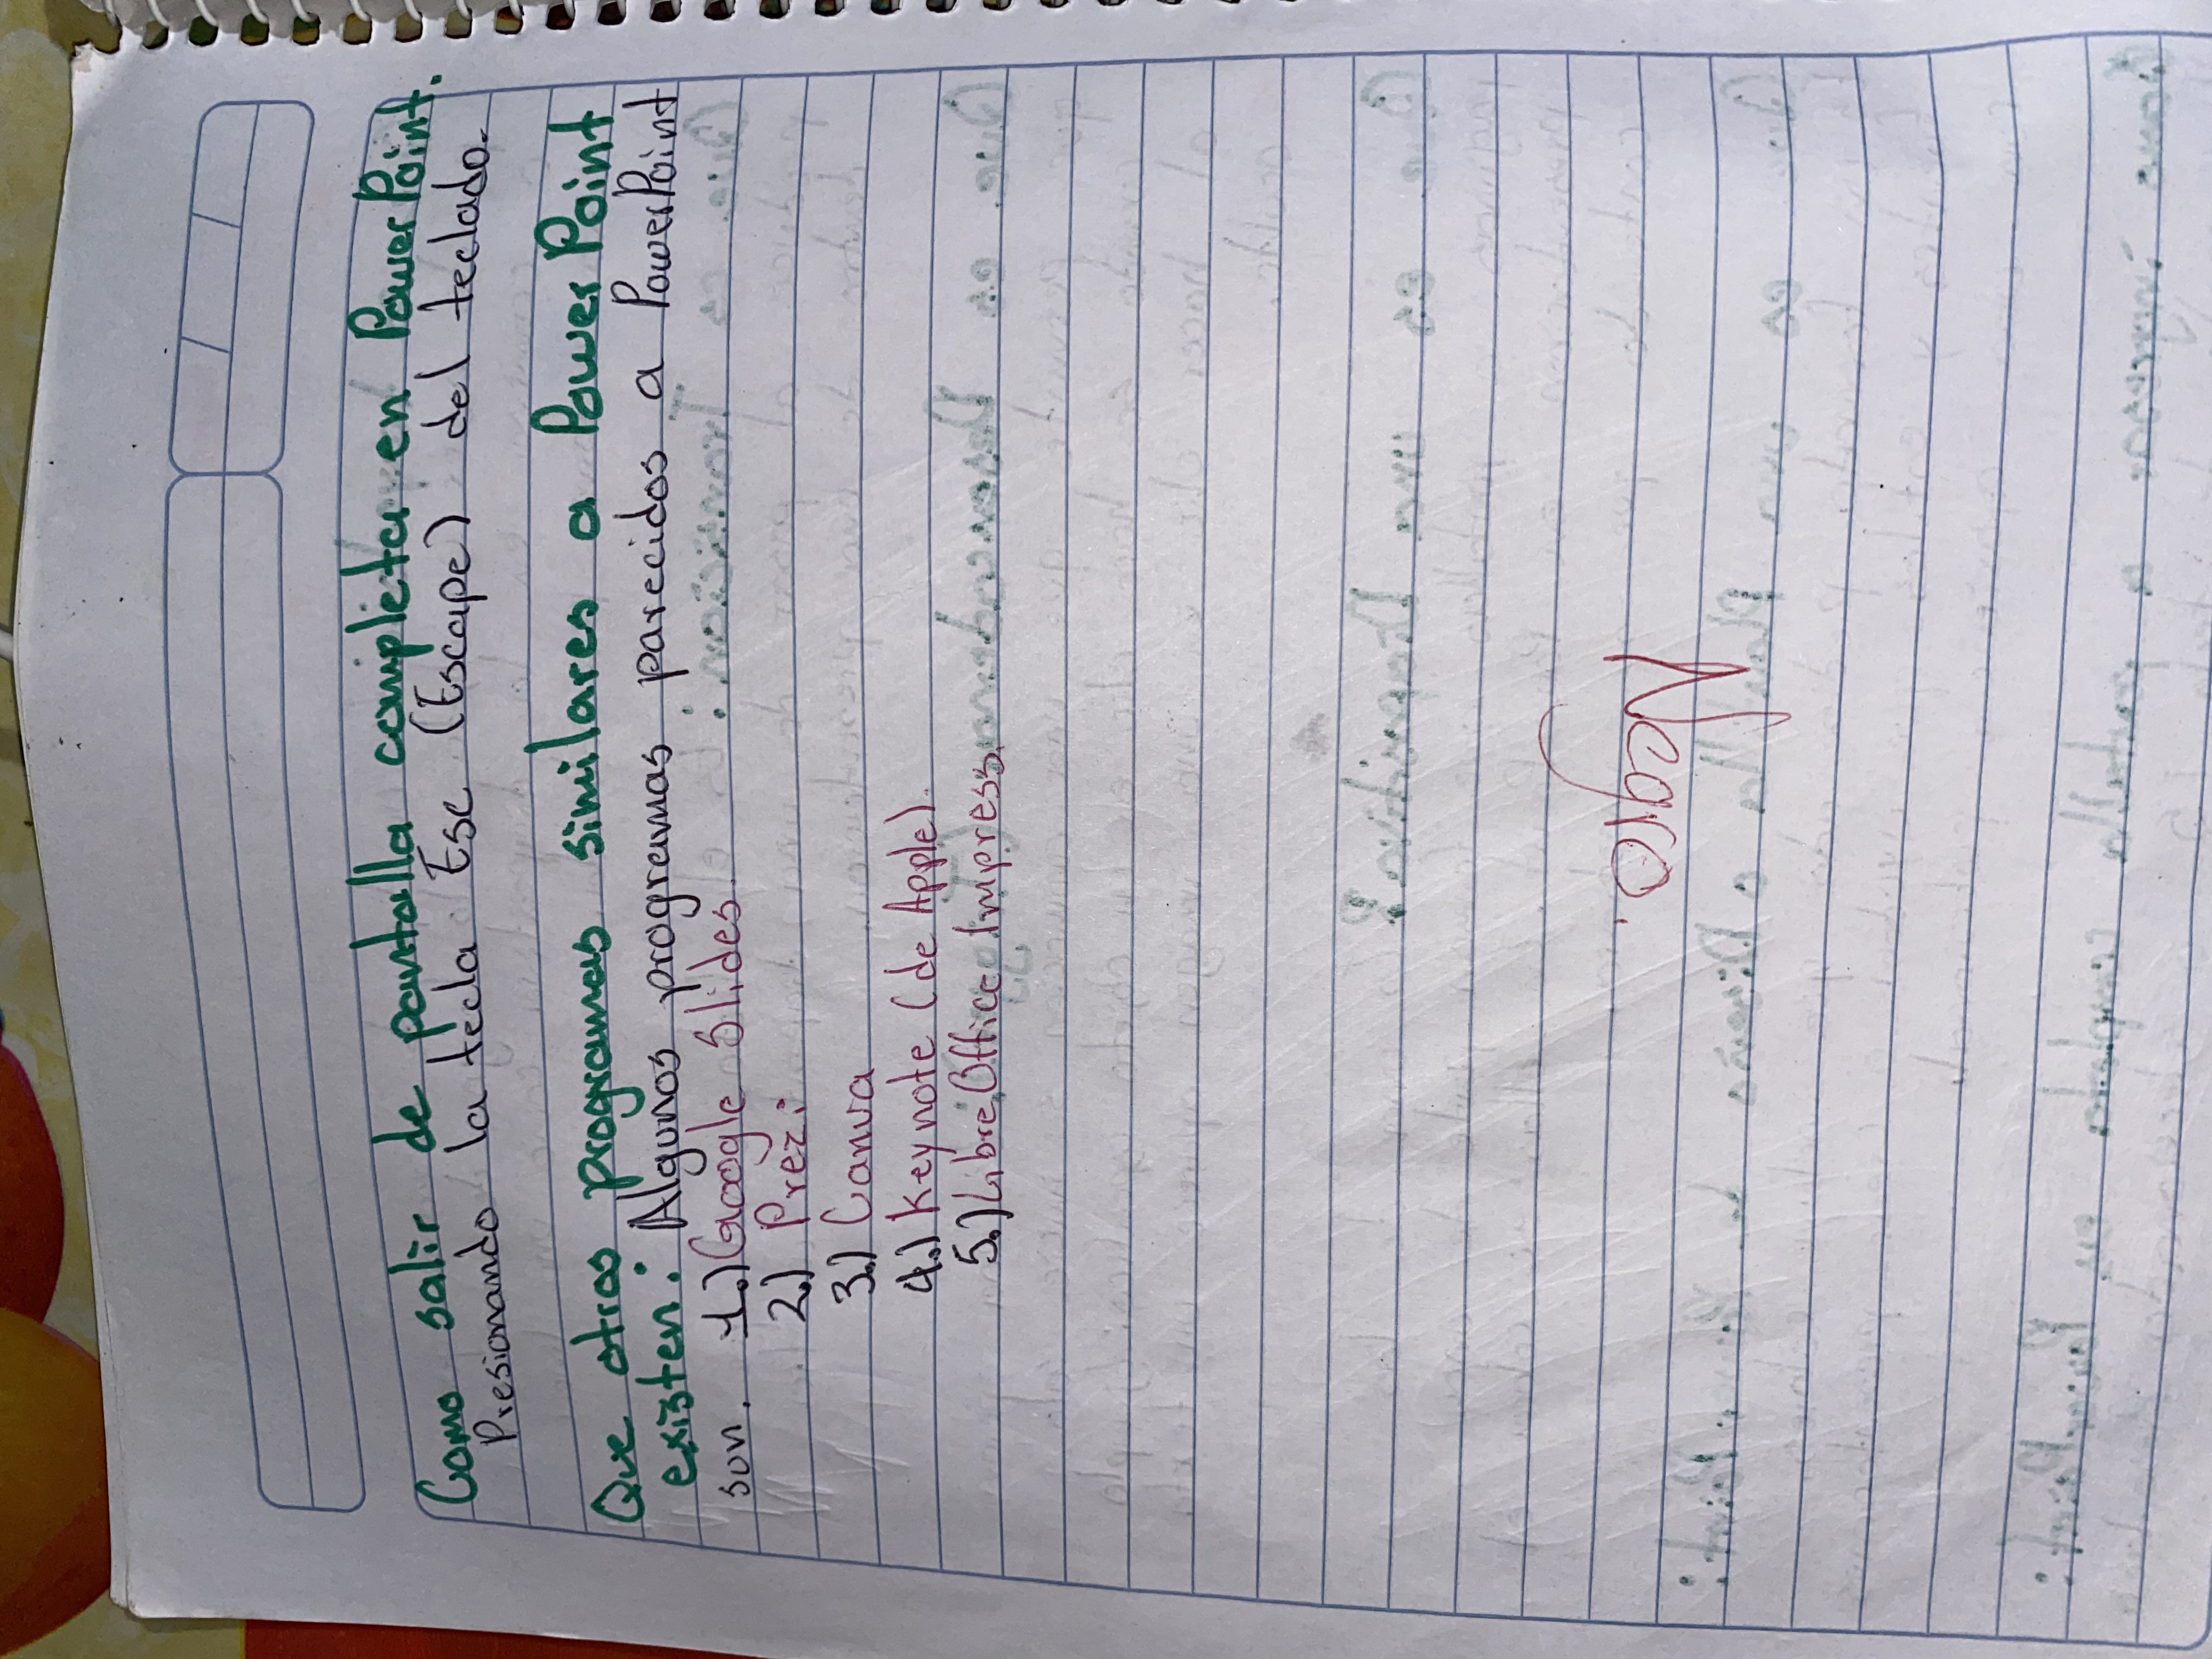 Como salir de pantalla completa en PowerPoint.
Presionando la tecla Esc (Escape) del teclado.
Que otros programas similares a PowerPoint
existen: Algunos programas parecidos a PowerPoint
son. 1.) Google Slides.
2.) Prezi
3.) Canva
4.) Keynote (de Apple).
5.) LibreOffice Impress.
Negro.